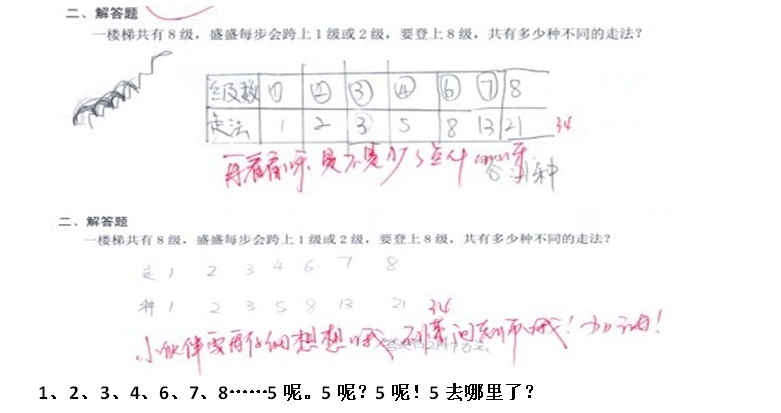 二、解答题
一楼梯共有 8 级，盛盛每步会跨上 1 级或 2 级，要登上 8 级，共有多少种不同的走法？
级数 ① ② ③ ④ ⑥ ⑦ 8
走法 1 2 3 5 8 13 21 34
再看看呀 是不是少了点什
答 种
二、解答题
一楼梯共有 8 级，盛盛每步会跨上 1 级或 2 级，要登上 8 级，共有多少种不同的走法？
走 1 2 3 4 6 7 8
种 1 2 3 5 8 13 21 34
小伙伴要再仔细想想哦 问老师哦！加油！
1、2、3、4、6、7、8……5 呢。5 呢？5 呢！5 去哪里了？